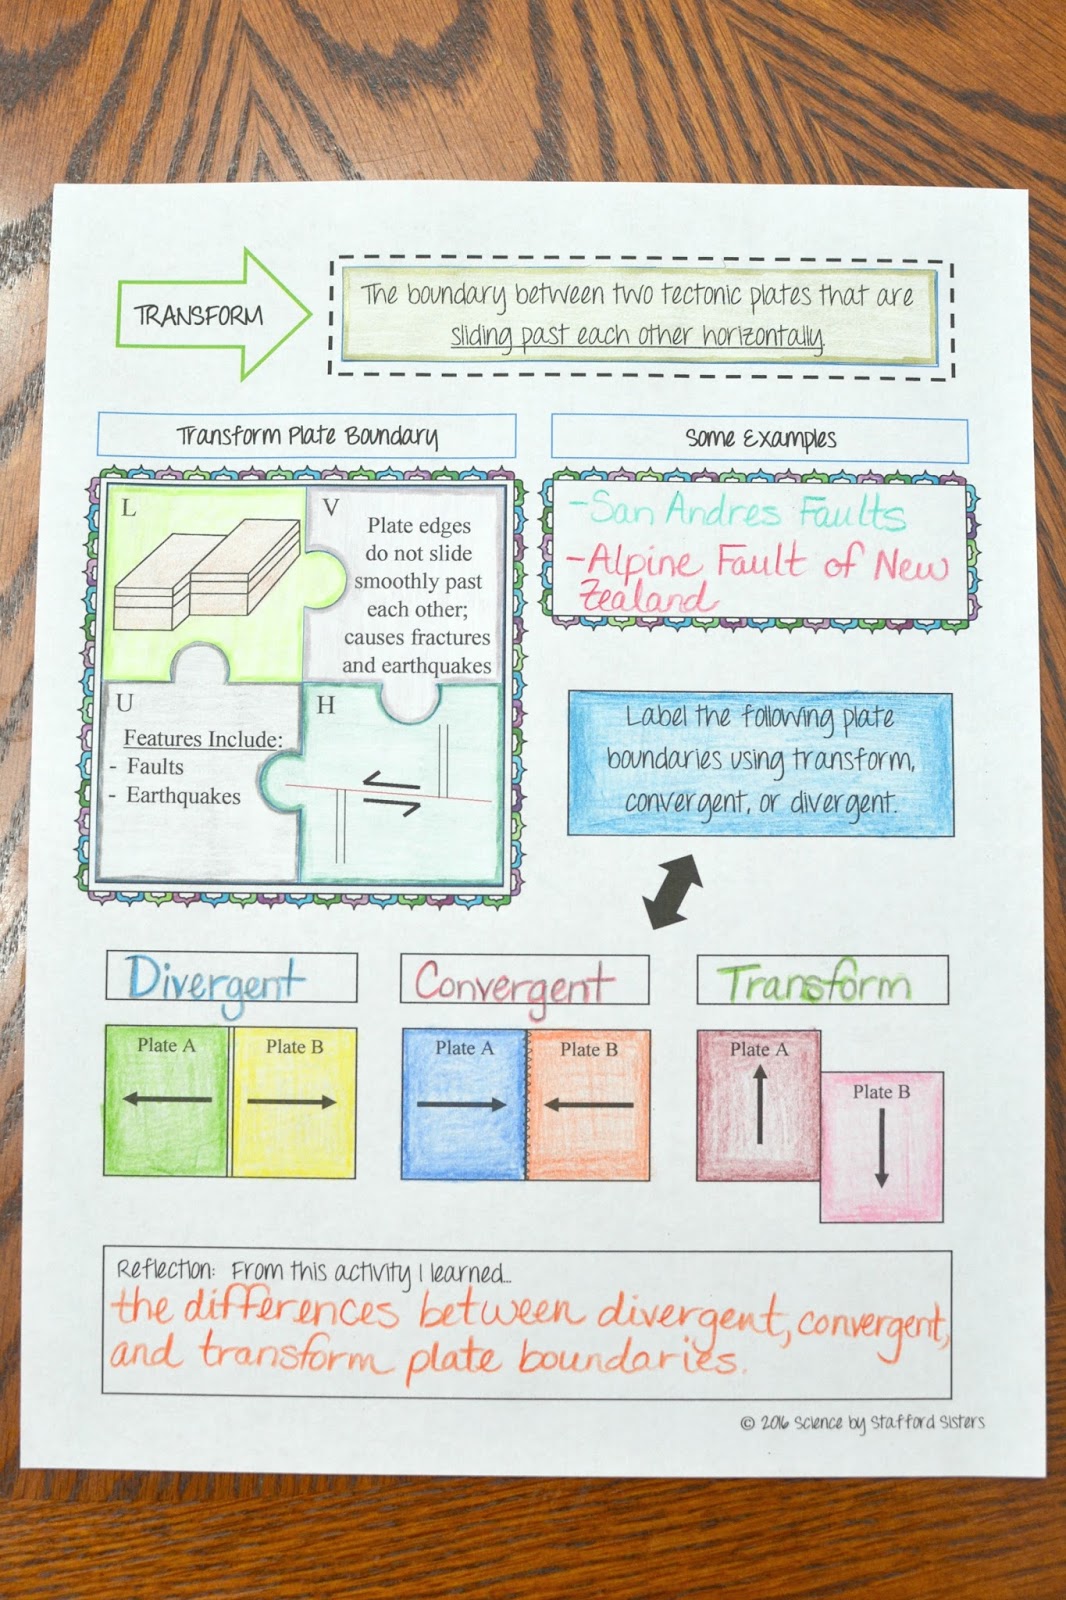 TRANSFORM
The boundary between two tectonic plates that are
sliding past each other horizontally.
Transform Plate Boundary
L
V
Plate edges
do not slide
smoothly past
each other;
causes fractures
and earthquakes
U
Features Include:
- Faults
- Earthquakes
H
Some Examples
-San Andres Faults
-Alpine Fault of New
Zealand
Label the following plate
boundaries using transform,
convergent, or divergent.
Divergent
Plate A
Plate B
Convergent
Plate A
Plate B
Transform
Plate A
Plate B
Reflection: From this activity I learned...
the differences between divergent, convergent,
and transform plate boundaries.
© 2016 Science by Stafford Sisters